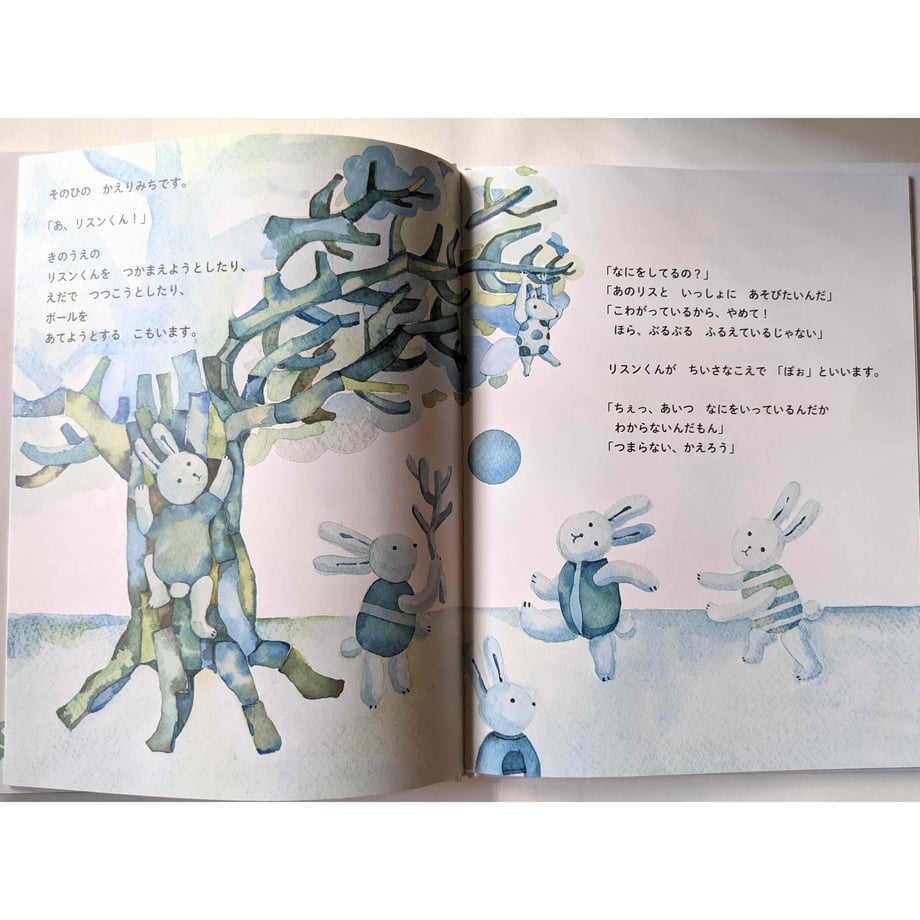 そのひの　かえりみちです。
「あ、リスンくん！」
きのうえの
リスンくんを　つかまえようとしたり、
えだで　つつこうとしたり、
ボールを
あてようとする　こもいます。
「なにをしてるの？」
「あのリスと　いっしょに　あそびたいんだ」
「こわがっているから、やめて！
ほら、ぶるぶる　ふるえているじゃない」
リスンくんが　ちいさなこえで　「ぼぉ」といいます。
「ちぇっ、あいつ　なにをいっているんだか
わからないんだもん」
「つまらない、かえろう」